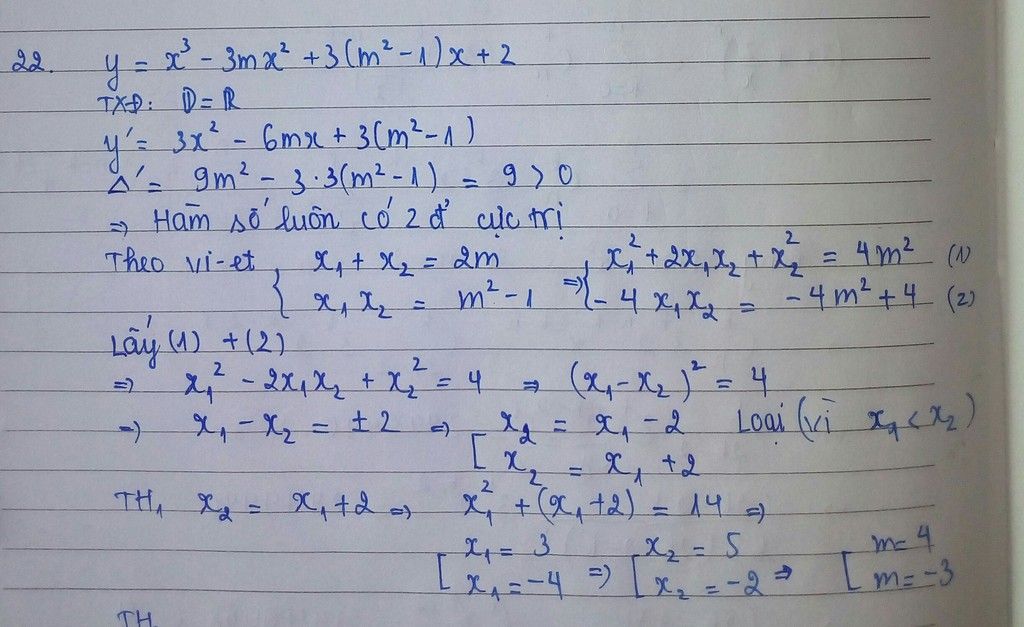 22. y = x³ - 3mx² + 3(m² - 1)x + 2
TXĐ: D = R
y' = 3x² - 6mx + 3(m² - 1)
Δ' = 9m² - 3·3(m² - 1) = 9 > 0
⇒ Hàm số luôn có 2 đ' cực trị
Theo vi-et { x₁ + x₂ = 2m ⇒ { x₁² + 2x₁x₂ + x₂² = 4m² (1)
x₁x₂ = m² - 1 - 4x₁x₂ = - 4m² + 4 (2)
Lấy (1) + (2)
⇒ x₁² - 2x₁x₂ + x₂² = 4 ⇒ (x₁ - x₂)² = 4
⇒ x₁ - x₂ = ± 2 ⇒ [ x₂ = x₁ - 2 Loại (vì x₁ < x₂)
x₂ = x₁ + 2
TH₁ x₂ = x₁ + 2 ⇒ x₁² + (x₁ + 2) = 14 ⇒
[ x₁ = 3 ⇒ [ x₂ = 5 ⇒ [ m = 4
x₁ = -4 x₂ = -2 m = -3
TH